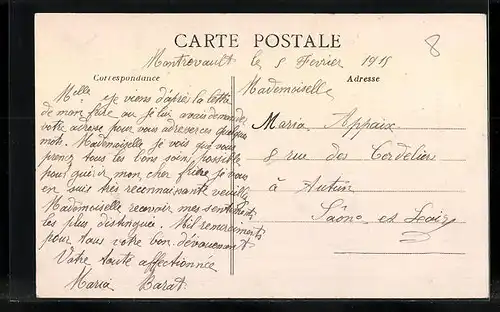 CARTE POSTALE
8
Montrevault le 5 Fevrier 1915
Correspondance
Adresse
Melle je viens d'après la lettre
de mon frère ou je lui avais demandé
votre adresse pour vous adresser ces quelques
mots. Mademoiselle je vois que vous
prenez tous les bons soins possible
pour guérir mon cher frère je vous
en suis très reconnaissante veuillez
Mademoiselle recevoir mes sentiments
les plus distingués. Mil remerciements
pour tous votre bon dévouement
Votre toute affectionnée
Maria Barat
Mademoiselle
Maria Appaix
8 rue des Cordeliers
à Autun
Saône et Loire